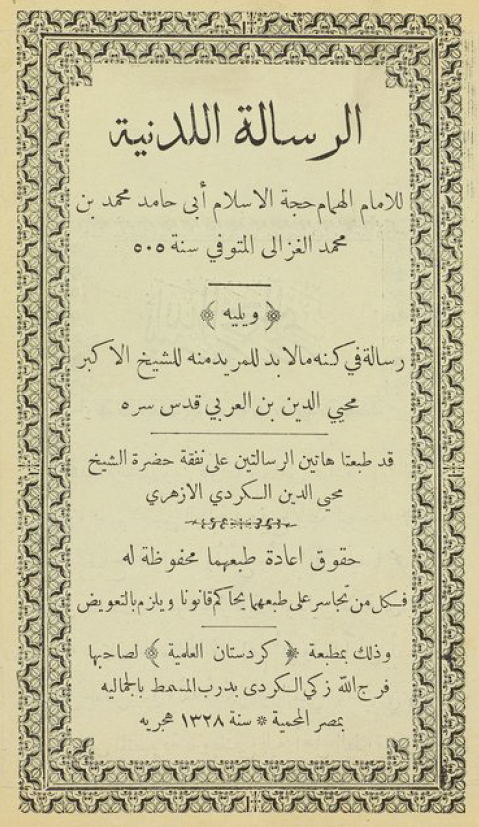 الرسالة اللدنية
للامام الهمام حجة الاسلام أبى حامد محمد بن
محمد الغزالى المتوفي سنة ٥٠٥
﴿ ويليه ﴾
رسالة في كنه مالابد للمريد منه للشيخ الاكبر
محيي الدين بن العربي قدس سره
قد طبعتا هاتين الرسالتين على نفقة حضرة الشيخ
محيي الدين الكردي الازهري
حقوق اعادة طبعهما محفوظة له
فكل من تجاسر على طبعهما يحاكم قانونا ويلزم بالتعويض
وذلك بمطبعة ﴿ كردستان العلمية ﴾ لصاحبها
فرج الله زكي الكردى بدرب المسمط بالجماليه
بمصر المحمية * سنة ١٣٢٨ هجريه